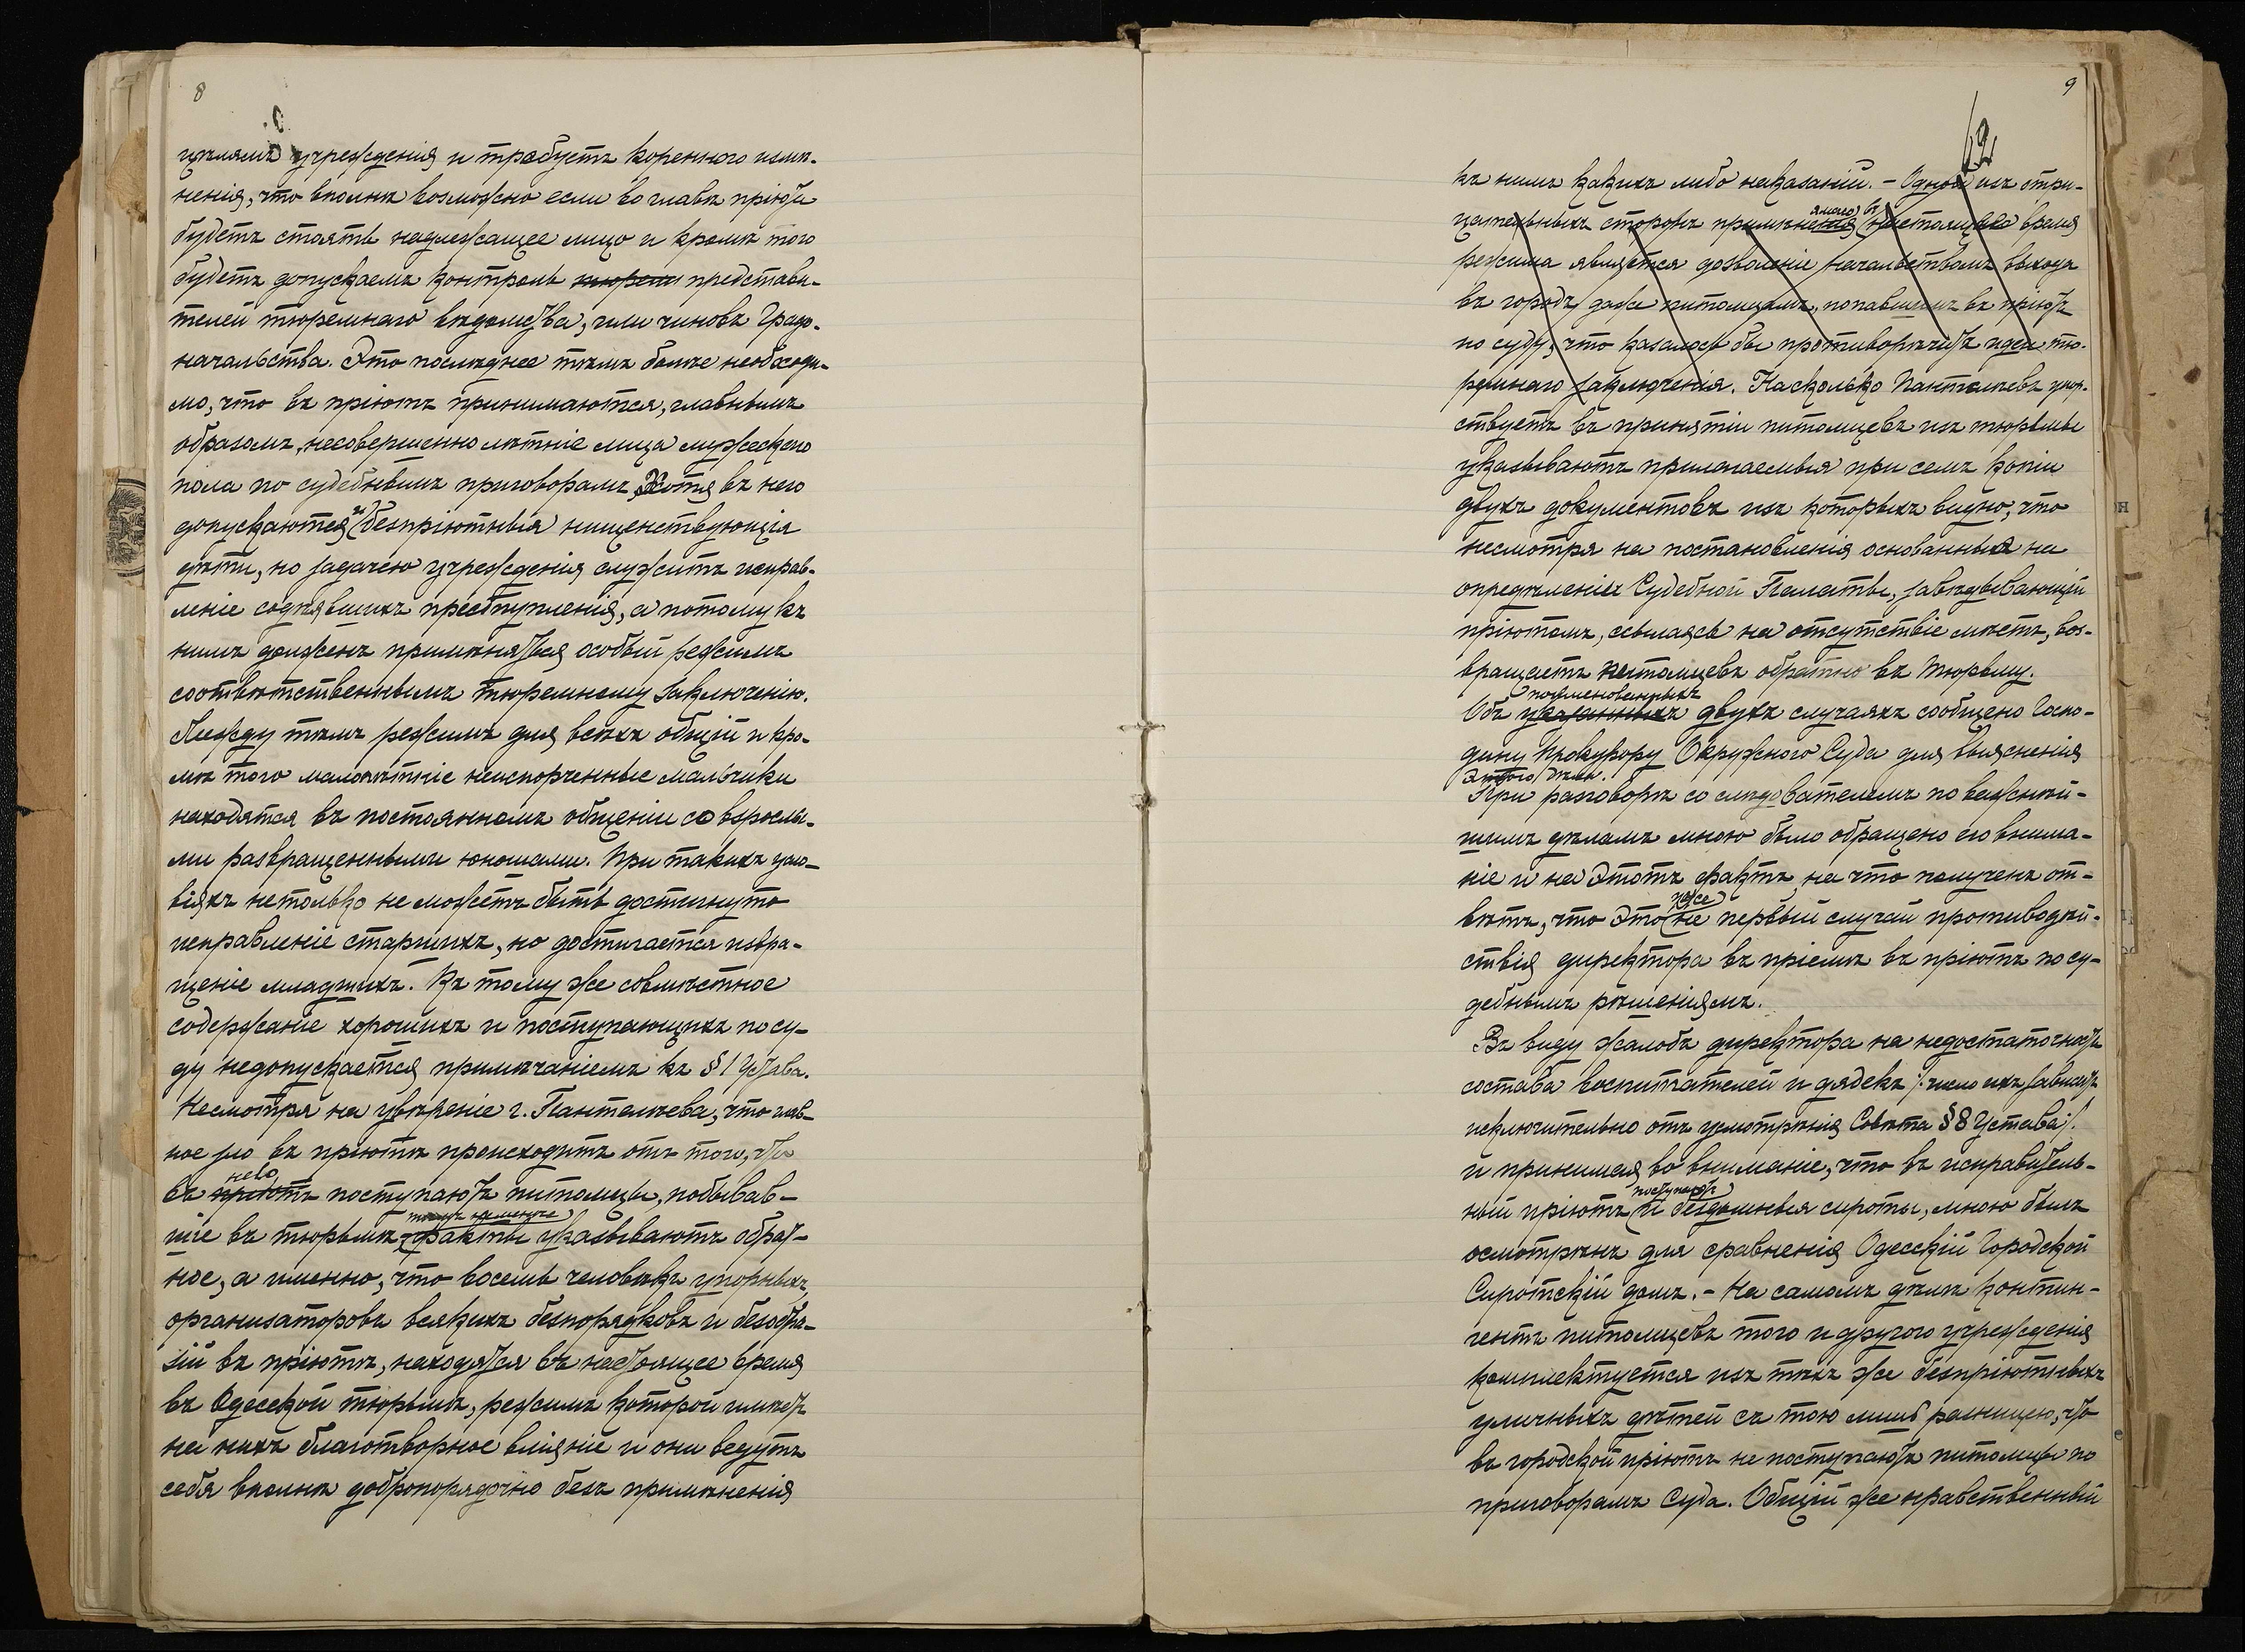 8
цѣлямъ учрежденія и требуетъ кореннаго измѣ-
ненія, что вполнѣ возможно если во главѣ пріюта
будетъ стоять надлежащее лицо и кромѣ того
будетъ допускаемъ контроль тюремн представи-
телей тюремнаго вѣдомства, или чиновъ Градо-
начальства. Это послѣднее тѣмъ болѣе необходи-
мо, что въ пріютъ принимаются, главнымъ
образомъ, несовершеннолѣтніе лица мужескаго
пола по судебнымъ приговорамъ, Хотя въ него
допускаются и безпріютныя нищенствующія
дѣти, но задачею учрежденія служитъ исправ-
леніе содѣявшихъ преступленія, а потому къ
нимъ долженъ примѣняться особый режимъ
соотвѣтственнымъ тюремному заключенію.
Между тѣмъ режимъ для всѣхъ общій и кро-
мѣ того малолѣтніе неиспорченные мальчики
находятся въ постоянномъ общеніи со взрослы-
ми развращенными юношами. При такихъ усло-
віяхъ нетолько не можетъ быть достигнуто
исправленіе старшихъ, но достигается извра-
щеніе младшихъ. Къ тому же совмѣстное
содержаніе хорошихъ и поступающихъ по су-
ду недопускается примѣчаніемъ къ § 1 Устава.
Несмотря на увѣреніе г. Пантелѣева, что глав-
ное зло въ пріютѣ происходитъ отъ того, что
него
въ пріютъ поступаютъ питомцы, побывав-
тѣмъ неменѣе
шіе въ тюрьмѣ факты указываютъ обрат-
ное, а именно, что восемь человѣкъ упорныхъ
организаторовъ всякихъ безпорядковъ и безобра-
зій въ пріютѣ, находятся въ настоящее время
въ Одесской тюрьмѣ, режимъ которой имѣетъ
на нихъ благотворное вліяніе и они ведутъ
себя вполнѣ добропорядочно безъ примѣненія
9
62
къ нимъ какихъ либо наказаній. - Одной изъ отри-
ямаго въ
цательныхъ сторонъ примѣненія настоящее время
режима является дозволеніе начальствомъ выхода
въ городъ даже питомцамъ, попавшимъ въ пріютъ
по суду, что казалось бы противорѣчитъ идеи тю-
ремнаго заключенія. Насколько Пантелѣевъ упор-
ствуетъ въ принятіи питомцевъ изъ тюрьмы
указываютъ прилагаемыя при семъ копіи
двухъ документовъ изъ которыхъ видно, что
несмотря на постановленія основанныя на
опредѣленіи Судебной Палаты, завѣдывающій
пріютомъ, ссылаясь на отсутствіе мѣстъ, воз-
вращаетъ питомцевъ обратно въ тюрьму.
поименованныхъ
Объ указанныхъ двухъ случаяхъ сообщено Госпо-
дину Прокурору Окружного Суда для выясненія
этого дѣла.
При разговорѣ со слѣдователемъ по важнѣй-
шимъ дѣламъ мною было обращено его внима-
ніе и на этотъ фактъ, на что полученъ от-
уже
вѣтъ, что это не первый случай противодѣй-
ствія директора въ пріемѣ въ пріютъ по су-
дебнымъ рѣшеніямъ.
Въ виду жалобъ директора на недостаточность
состава воспитателей и дядекъ /: число ихъ зависитъ
исключительно отъ усмотрѣнія Совѣта § 8 Устава :/
и принимая во вниманіе, что въ исправитель-
поступаютъ
ный пріютъ и бездомныя сироты, мною былъ
осмотрѣнъ для сравненія Одесскій Городской
Сиротскій домъ. - На самомъ дѣлѣ контин-
гентъ питомцевъ того и другого учрежденія
комплектуется изъ тѣхъ же безпріютныхъ
уличныхъ дѣтей съ тою лишь разницею, что
въ городской пріютъ не поступаютъ питомцы по
приговорамъ Суда. Общій же нравственный